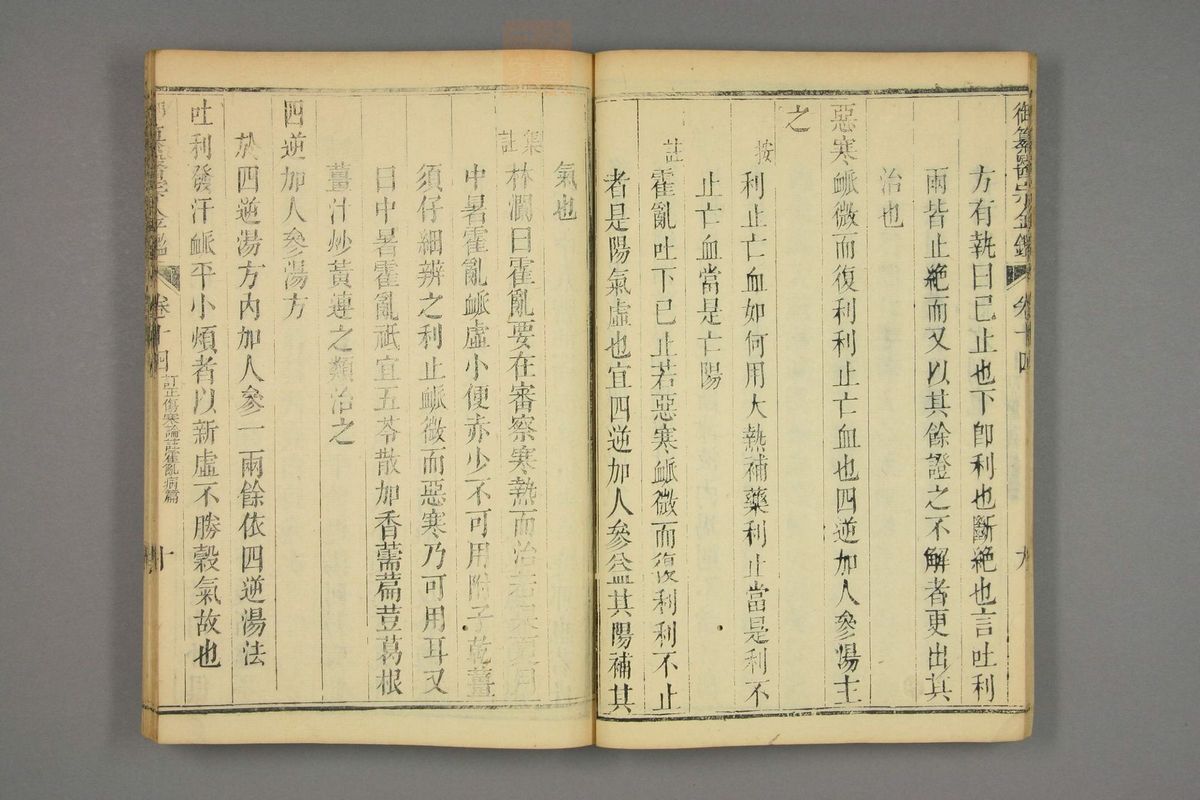 御纂醫宗金鑑 卷十四 九
方有執曰巳止也下卽利也斷絶也言吐利
兩皆止絶而又以其餘證之不解者更出其
治也
惡寒衇微而復利利止亡血也四逆加人參湯主
之
按利止亡血如何用大熱補藥利止當是利不
止亡血當是亡陽
註霍亂吐下巳止若惡寒衇微而復利利不止
者是陽氣虛也宜四逆加人參益其陽補其
氣也
集註林瀾曰霍亂要在審察寒熱而治若夏月
中暑霍亂衇虛小便赤少不可用附子乾薑
須仔細辨之利止衇微而惡寒乃可用耳又
曰中暑霍亂祇宜五苓散加香薷萹荳葛根
薑汁炒黃連之類治之
四逆加人參湯方
於四逆湯方內加人參一兩餘依四逆湯法
吐利發汗衇平小煩者以新虛不勝穀氣故也
卷十四 訂正傷寒論註霍亂病篇 十